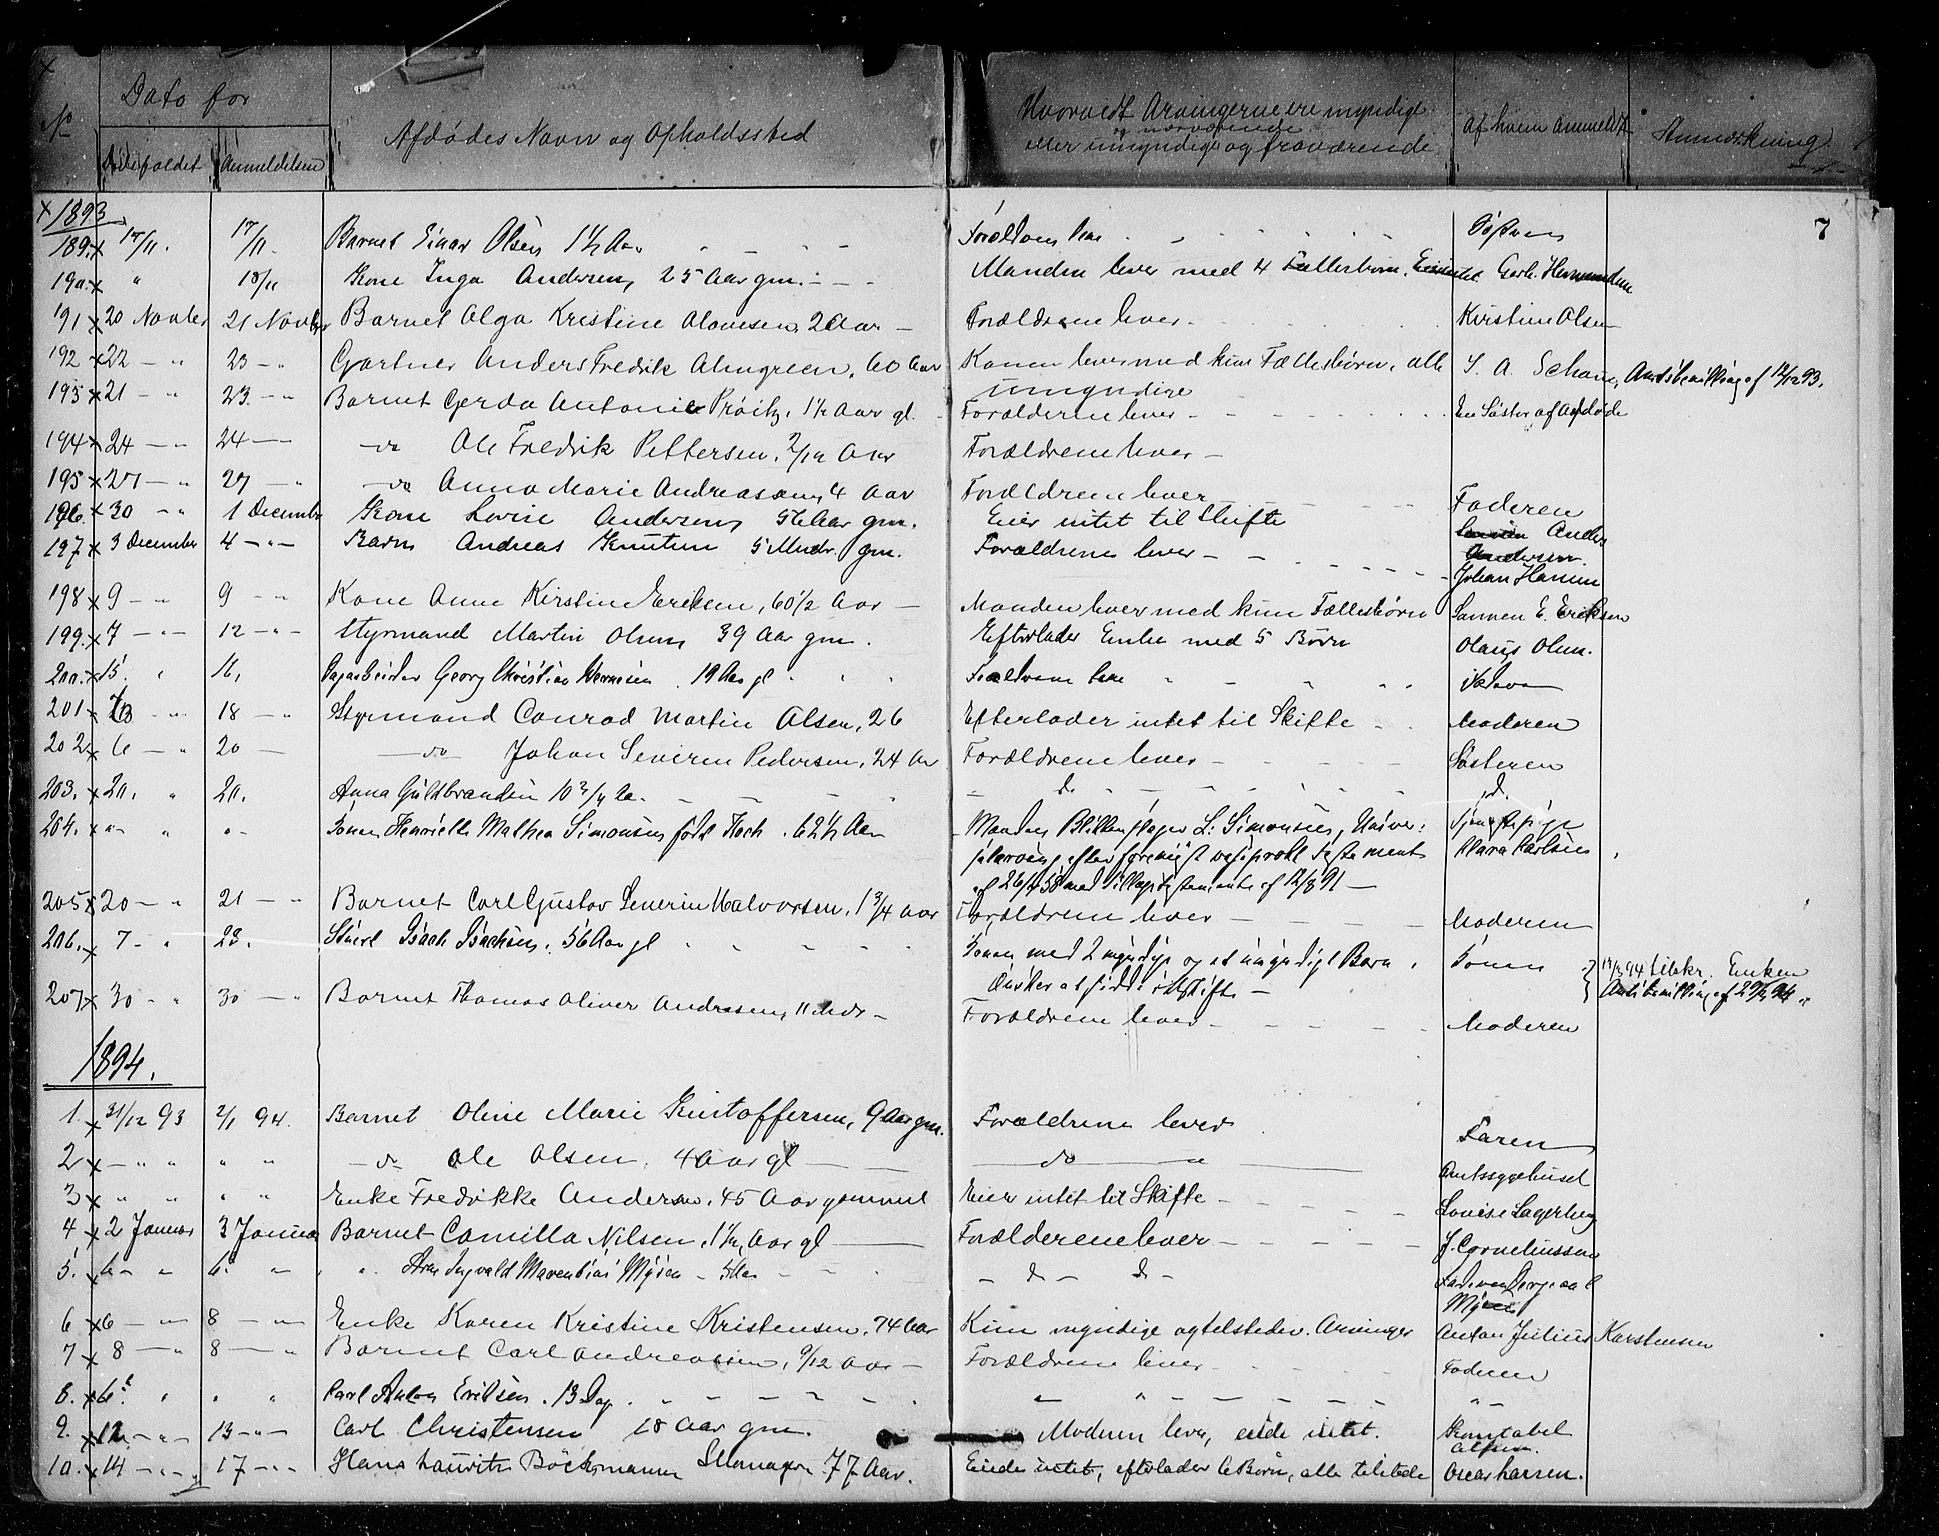 No
Dato for
Dødsfaldet
Anmeldelsen
Afdødes Navn og Opholdssted
Hvorvidt Arvingerne ere myndige
og nærværende
eller umyndige og fraværende
Af hvem anmeldt
Anmærkning
7
1893
189. 17/11. 17/11. Barnet Einar Olsen 1½ Aar Forældrene leve
190. " 18/11 Kone Inga Andersen, 25 Aar gm. Manden lever med 4 Fællesbørn.
191 20 Novbr 21 Novbr Barnet Olga Kristine 2 Aar Forældrene lever Kirstine Olsen
192 22 - " 23 - " Gartner Anders Fredrik Almgreen, 60 Aar Konen lever med kun Fællesbørn, alle S. A. Amtsbevilling af 12/12 93.
umyndige
193 21 - " 23 - " Barnet Gerda Antonie 1½ Aar gl. Forælderne lever En Søster af Afdøde
194 24 - " 24 - do Ole Fredrik Pettersen, Aar Forældrene lever
195 27 - " 27 - " do Anna Marie Andreasen, 4 Aar Forældrene lever Faderen
196. 30 - " 1 December Kone Lovise Andersen, 56 Aar gm. Eier intet til Skifte Anders
Andersen.
197 3 December 4 - " - Barn Andreas Knutsen 5 Mndr. gm. Forældrene lever
Johan Hansen
198 9 - " 9 - " Kone Anne Kirstine Eriksen, 60 1/2 Aar Manden lever med kun Fællesbørn Sønnen E. Eriksen
199. 7 - " - 12 - " - Styrmand Martin Olsen 39 Aar gm. Efterlader Enke med 5 Børn Olaus Olsen.
200. 15. " 16, Dagarbeider Georg Christian 19 Aar gl Forældrene leve
201 18 - " Styrmand Conrad Martin Olsen, 26 Efterlader intet til Skifte Moderen
202 6 - " 20 - do Johan Severin Pedersen, 24 Aar Forældrene lever Søsteren
203. 20. " 20. Anna Guldbrandsen 10 3/4 Aa. - d. d.
204. " " " Konen Henriette Mathea Simonsen født Koch. 62½ Aar Manden, Blikkenslager L. Simonsen, Univer-
Tjenestepige
Clara Carlsen
af 26/4 58 med af 12/8 91 -
205 20 - " 21 - " Barnet Carl Gustav Severin Halvorsen, 1 3/4 Aar Forældrene lever Moderen
206. 7 - " 23. Isach Isachsen. 56 Aar gl Konen med 2 myndige og et umyndigt Barn Konen 94 tilskr. Enken
Ønsker at sidde i uskifte - Amtsbevilling af 94.
207 30 - " 30 - " Barnet Thomas Oliver Andresen, 11 Mdr - Forældrene lever Moderen
1894.
1. 31/12 93 2/1 94. Barnet Oline Marie Kristoffersen, 9 Aar gm. Forældrene lever Faren
2 - " " " " - do Ole Olsen, 4 Aar gl do Amtssygehuset
3 " " " " Enke Fredrikke Andersen, 45 Aar gammel Eier intet til Skifte Lovise Lagerberg
4 2 Januar 3 Januar Barnet Camilla Nilsen, 1½ Aar gl Forælderene lever J. Corneliussen
5. 6 - " 6. - " " Arne Ingvald Marentius Mysen - 5 Aar - d - d - Faderen
Mysen
6 6 - " 8 - " Enke Karen Kristine Kristensen, 74 Aar Kun myndige og tilstedev. Arvinger Anton Julius Karstensen
7 8 - " 8 - " Barnet Carl Andreassen, 9/12 Aar - Forældrene lever Faderen
8. 6. " " " Carl Anton Eriksen. 13 Dag. " " - " -
9. 12 - " - 13 - " - Carl Christensen 18 Aar gm. Moderen lever, eiede intet. Konstabel
Olsen.
10. 14 - " - 17 - " - Hans Lauritz Böckmann 77 Aar. Eiede intet, efterlader 6 Børn, alle tilstede Oscar Larsen.